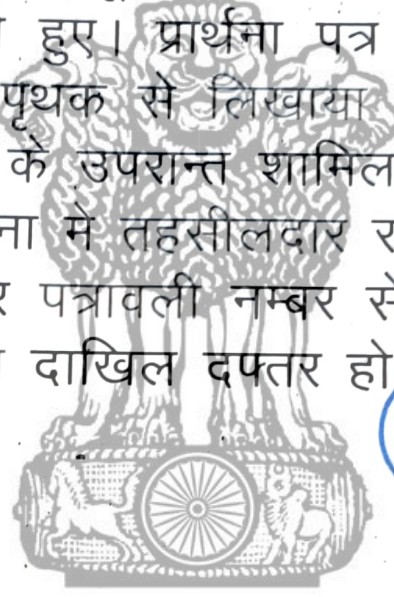 हुए। प्रार्थना पत्र
पृथक से लिखाया
के उपरान्त शामिल
ना में तहसीलदार र
र पत्रावली नम्बर से
दाखिल दफ्तर हो